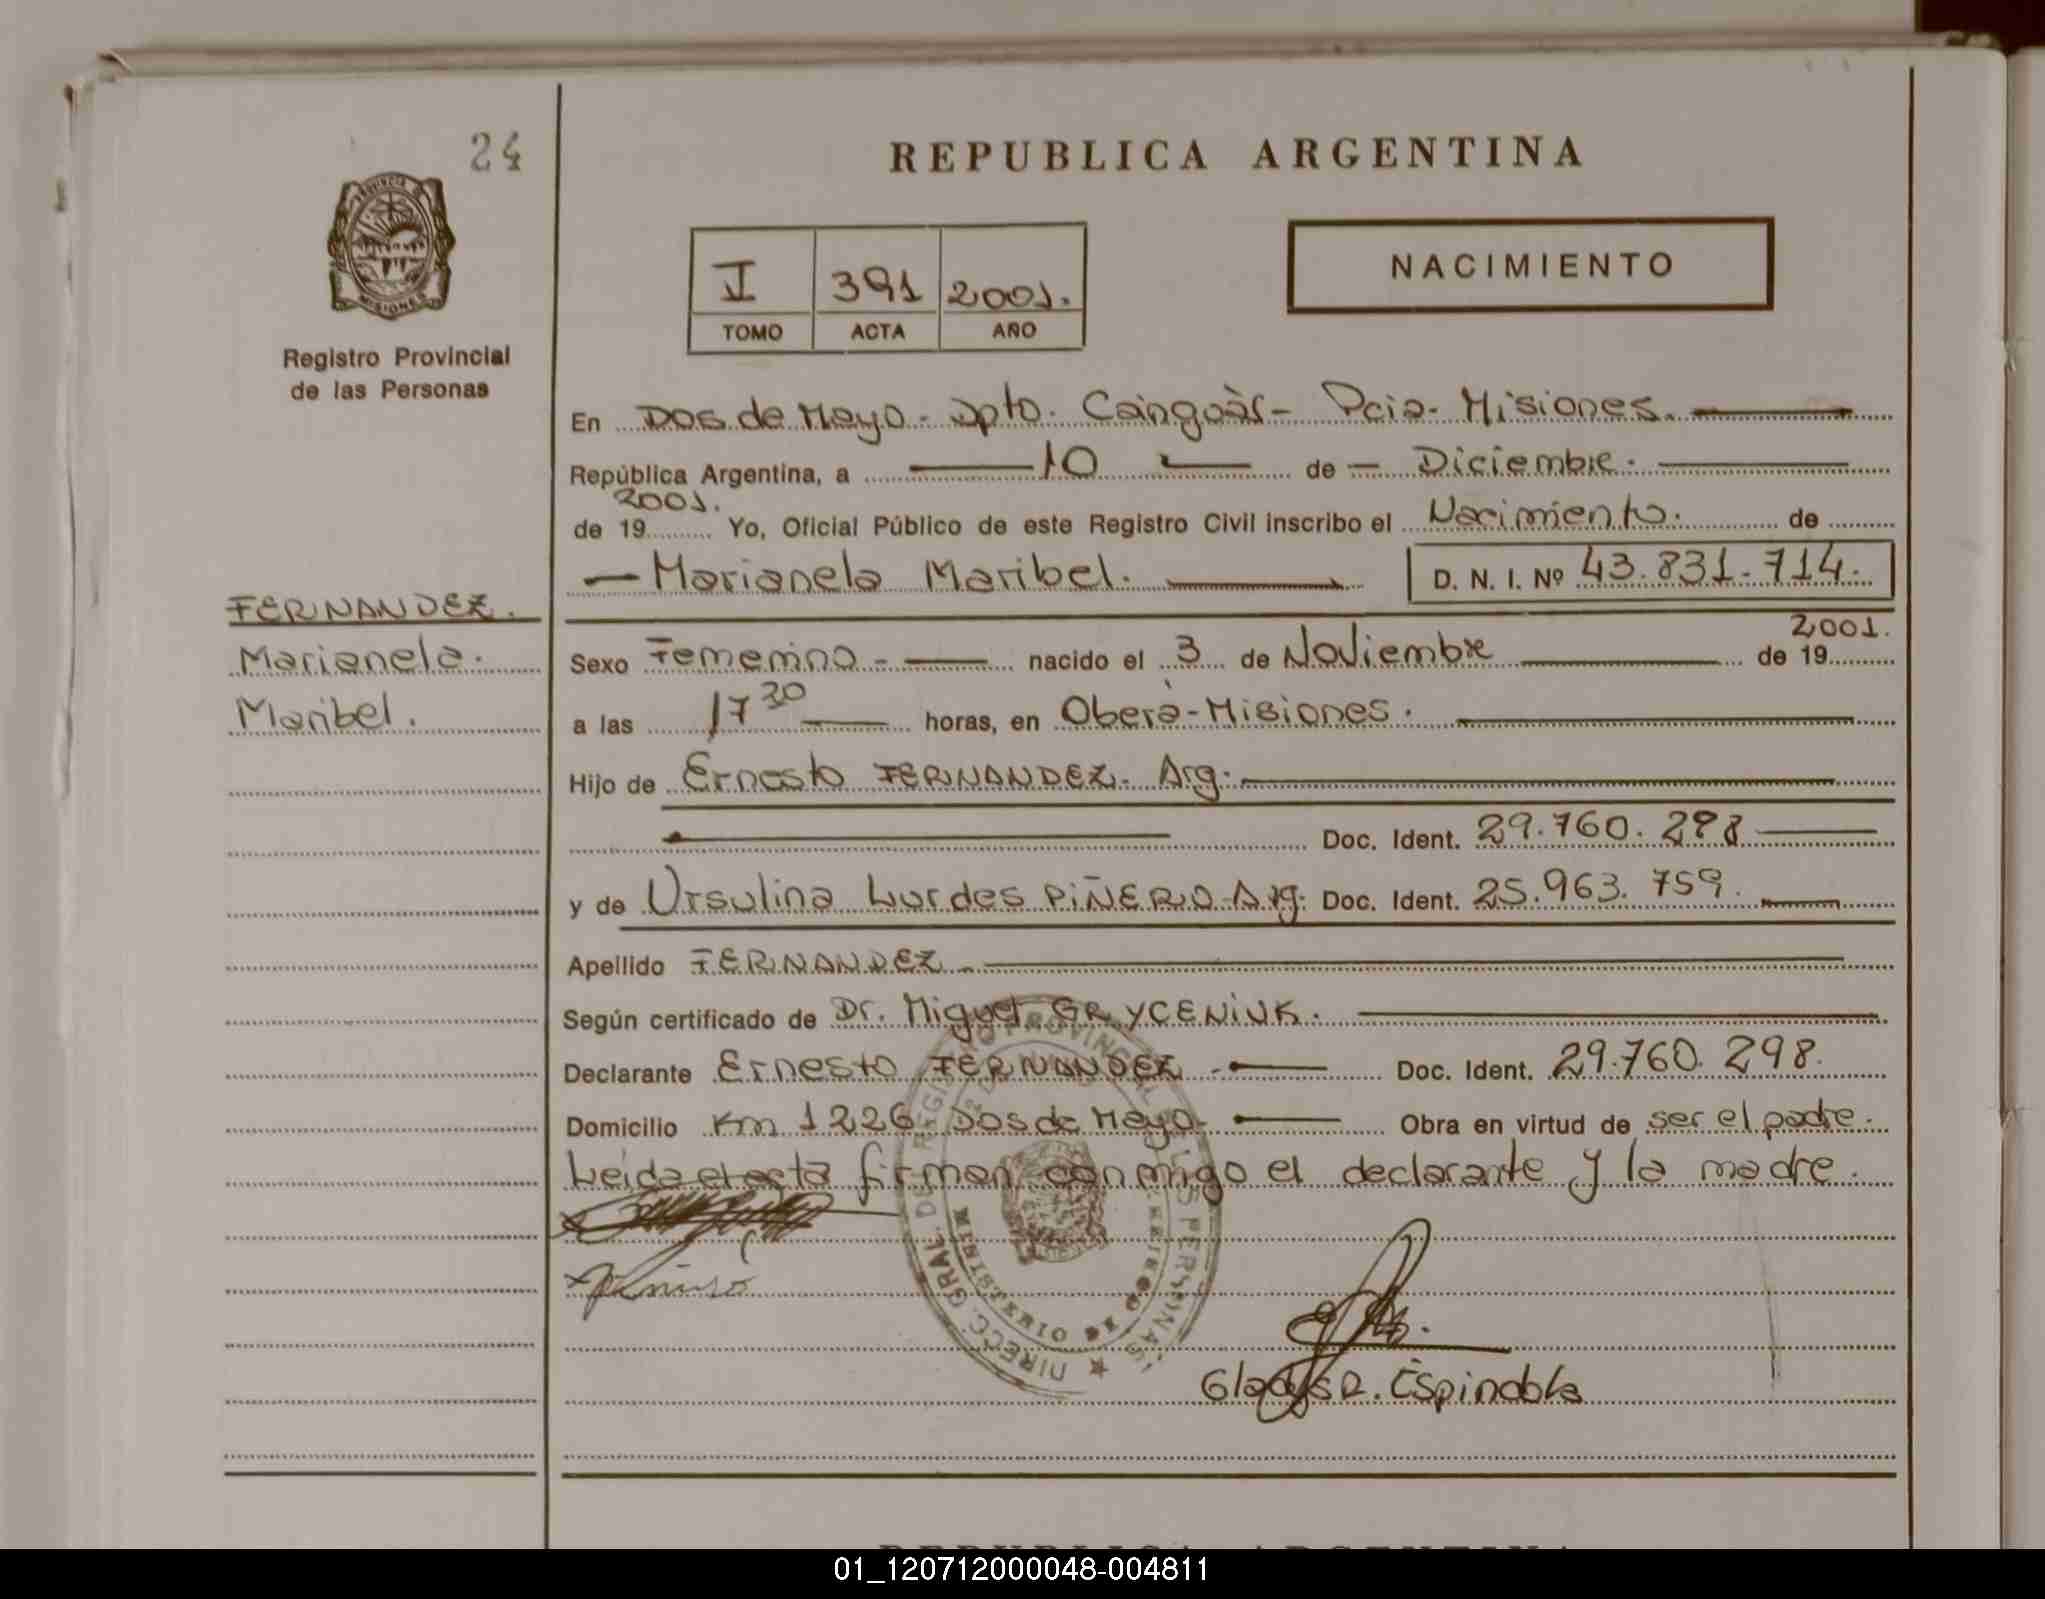 24
REPUBLICA ARGENTINA
PROVINCIA DE
MISIONES
Registro Provincial
de las Personas
I 391 2001.
TOMO ACTA AÑO
NACIMIENTO
En Dos de Mayo - Dpto. Caingoàs - Pcia - Misiones.
República Argentina, a 10 de Diciembre.
2001.
de 19 Yo, Oficial Público de este Registro Civil inscribo el Nacimiento. de
Marianela Maribel. D. N. I. Nº 43.831.714.
FERNANDEZ.
Marianela.
Maribel.
2001.
Sexo Femenino - nacido el 3 de Noviembre de 19
a las 17 30 horas, en Oberà - Misiones.
Hijo de Ernesto FERNANDEZ - Arg.
Doc. Ident. 29.760.298
y de Ursulina Lurdes PIÑERO - Arg. Doc. Ident. 25.963.759.
Apellido FERNANDEZ -
Según certificado de Dr. Miguel GRYCENIUK.
Declarante Ernesto FERNANDEZ - Doc. Ident. 29.760.298.
Domicilio Km 1226 Dos de Mayo - Obra en virtud de ser el padre.
Leida el acta firman conmigo el declarante y la madre.
DIRECC. GRAL. DE REGISTRO PROVINCIAL DE LAS PERSONAS
MINISTERIO DE GOBIERNO
Gladys R. Espindola
REPUBLICA ARGENTINA
01_120712000048-004811